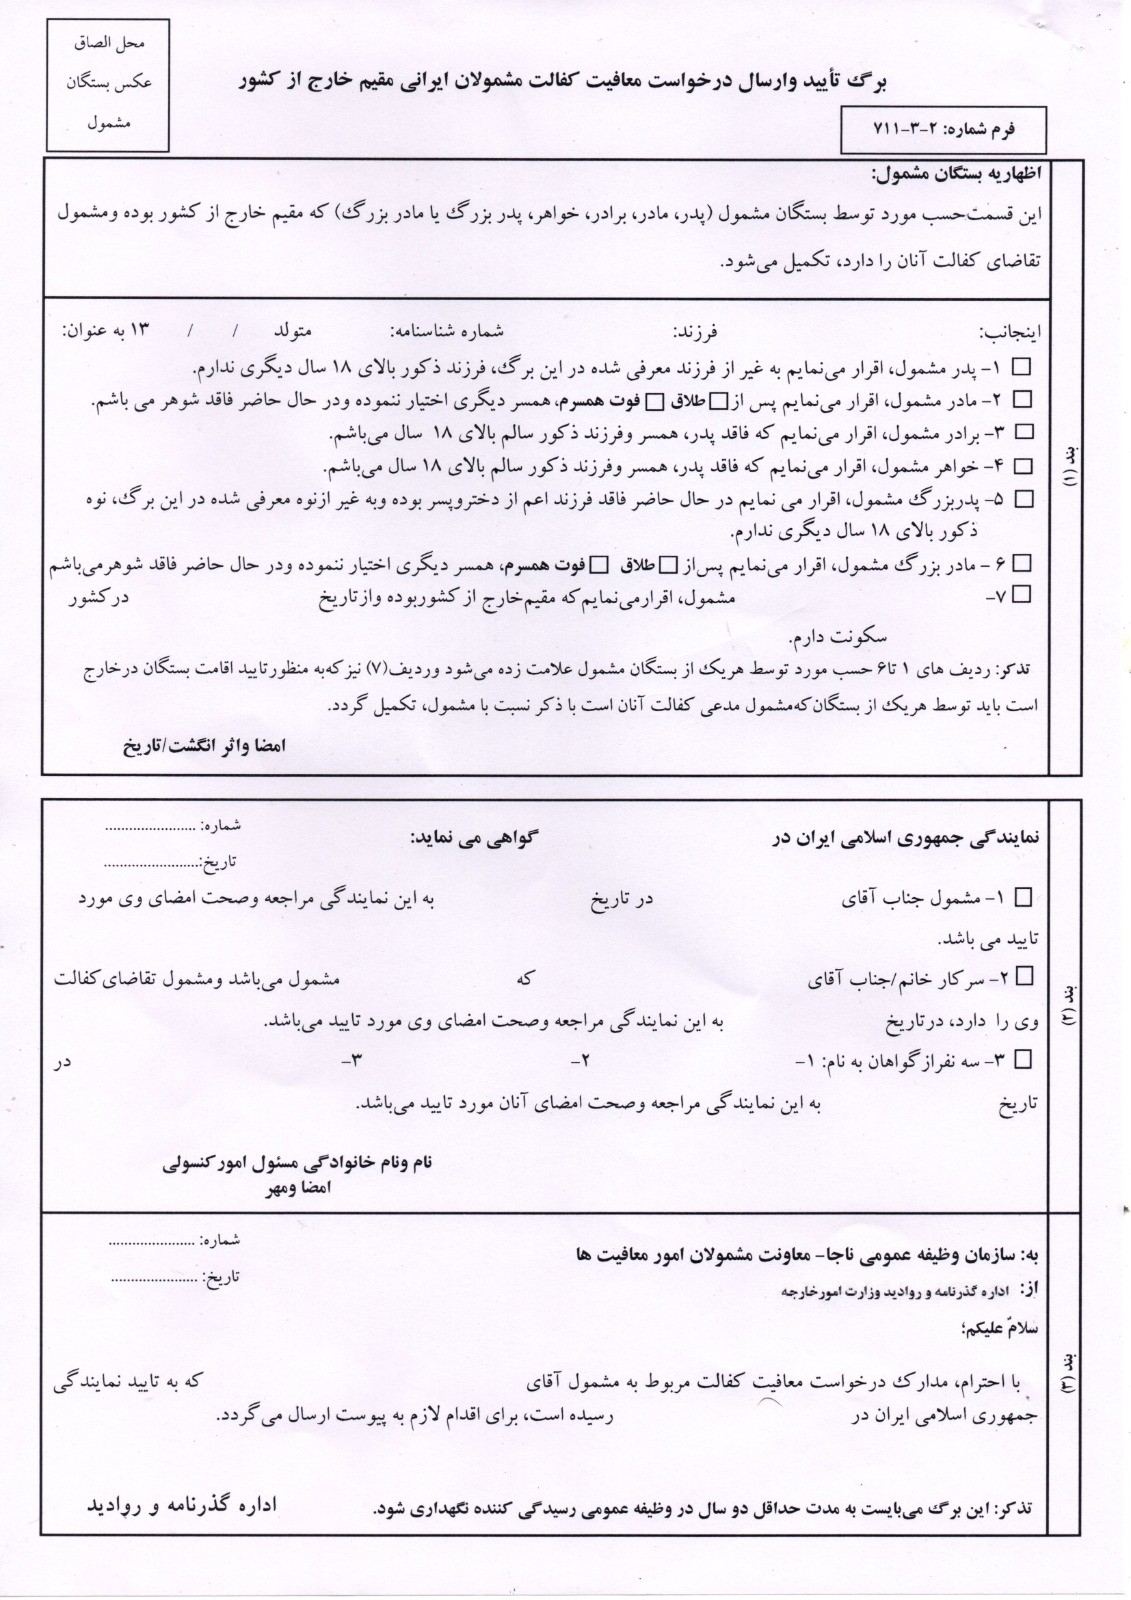 محل الصاق
عکس بستگان
مشمول
برگ تأیید وارسال درخواست معافیت کفالت مشمولان ایرانی مقیم خارج از کشور
فرم شماره: ۲-۳-۷۱۱
اظهاریه بستگان مشمول:
این قسمت‌حسب مورد توسط بستگان مشمول (پدر، مادر، برادر، خواهر، پدر بزرگ یا مادر بزرگ) که مقیم خارج از کشور بوده ومشمول
تقاضای کفالت آنان را دارد، تکمیل می‌شود.
بند (۱)
اینجانب: فرزند: شماره شناسنامه: متولد / / ۱۳ به عنوان:
☐ ۱- پدر مشمول، اقرار می‌نمایم به غیر از فرزند معرفی شده در این برگ، فرزند ذکور بالای ۱۸ سال دیگری ندارم.
☐ ۲- مادر مشمول، اقرار می‌نمایم پس از ☐ طلاق ☐ فوت همسرم، همسر دیگری اختیار ننموده ودر حال حاضر فاقد شوهر می باشم.
☐ ۳- برادر مشمول، اقرار می‌نمایم که فاقد پدر، همسر وفرزند ذکور سالم بالای ۱۸ سال می‌باشم.
☐ ۴- خواهر مشمول، اقرار می‌نمایم که فاقد پدر، همسر وفرزند ذکور سالم بالای ۱۸ سال می‌باشم.
☐ ۵- پدربزرگ مشمول، اقرار می نمایم در حال حاضر فاقد فرزند اعم از دختروپسر بوده وبه غیر ازنوه معرفی شده در این برگ، نوه
ذکور بالای ۱۸ سال دیگری ندارم.
☐ ۶- مادر بزرگ مشمول، اقرار می‌نمایم پس‌از ☐ طلاق ☐ فوت همسرم، همسر دیگری اختیار ننموده ودر حال حاضر فاقد شوهرمی‌باشم
☐ ۷- مشمول، اقرارمی‌نمایم‌که مقیم‌خارج از کشوربوده وازتاریخ درکشور
سکونت دارم.
تذکر: ردیف های ۱ تا۶ حسب مورد توسط هریک از بستگان مشمول علامت زده می‌شود وردیف(۷) نیزکه‌به منظورتایید اقامت بستگان درخارج
است باید توسط هریک از بستگان‌که‌مشمول مدعی کفالت آنان است با ذکر نسبت با مشمول، تکمیل گردد.
امضا واثر انگشت/تاریخ
شماره: .......................
نمایندگی جمهوری اسلامی ایران در گواهی می نماید:
تاریخ:........................
بند (۲)
☐ ۱- مشمول جناب آقای در تاریخ به این نمایندگی مراجعه وصحت امضای وی مورد
تایید می باشد.
☐ ۲- سرکار خانم/جناب آقای که مشمول می‌باشد ومشمول تقاضای‌کفالت
وی را دارد، درتاریخ به این نمایندگی مراجعه وصحت امضای وی مورد تایید می‌باشد.
☐ ۳- سه نفرازگواهان به نام: ۱- ۲- ۳- در
تاریخ به این نمایندگی مراجعه وصحت امضای آنان مورد تایید می‌باشد.
نام ونام خانوادگی مسئول امورکنسولی
امضا ومهر
شماره: ......................
به: سازمان وظیفه عمومی ناجا- معاونت مشمولان امور معافیت ها
تاریخ: ......................
از: اداره گذرنامه و روادید وزارت امورخارجه
سلامٌ علیکم؛
بند (۳)
با احترام، مدارک درخواست معافیت کفالت مربوط به مشمول آقای که به تایید نمایندگی
جمهوری اسلامی ایران در رسیده است، برای اقدام لازم به پیوست ارسال می‌گردد.
اداره گذرنامه و روادید
تذکر: این برگ می‌بایست به مدت حداقل دو سال در وظیفه عمومی رسیدگی کننده نگهداری شود.